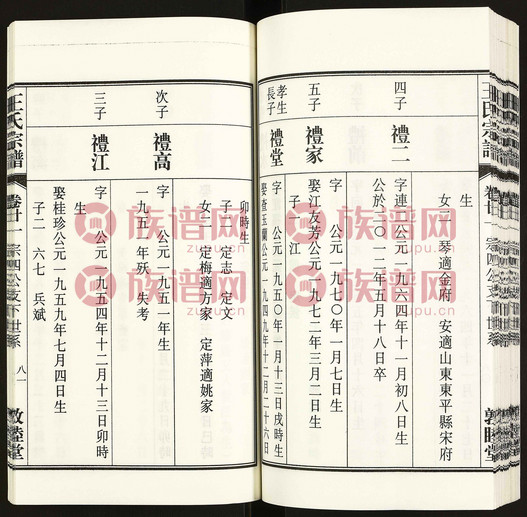 王氏宗譜
卷廿一
宗四公支下世系
敦睦堂
生
女二 琴適金府 安適山東東平縣宋府
四子
禮二
字連 公元一九六四年十一月初八日生
公於二〇一二年五月十八日卒
五子
禮家
字 公元一九七〇年一月七日生
娶江友芳公元一九七二年三月二日生
子一 江
孝生
長子
禮堂
字 公元一九五〇年一月十三日戌時生
娶查玉蘭公元一九四九年十二月二十六日
卯時生
子二 定志 定文
女二 定梅適方家 定萍適姚家
次子
禮高
字 公元一九五一年生
一九五 年殀 失考
三子
禮江
字 公元一九五四年十二月十三日卯時
生
娶桂珍公元一九五九年七月四日生
子二 六七 兵斌
王氏宗譜
卷廿一
宗四公支下世系
八一
敦睦堂
族谱网
zupu.cn